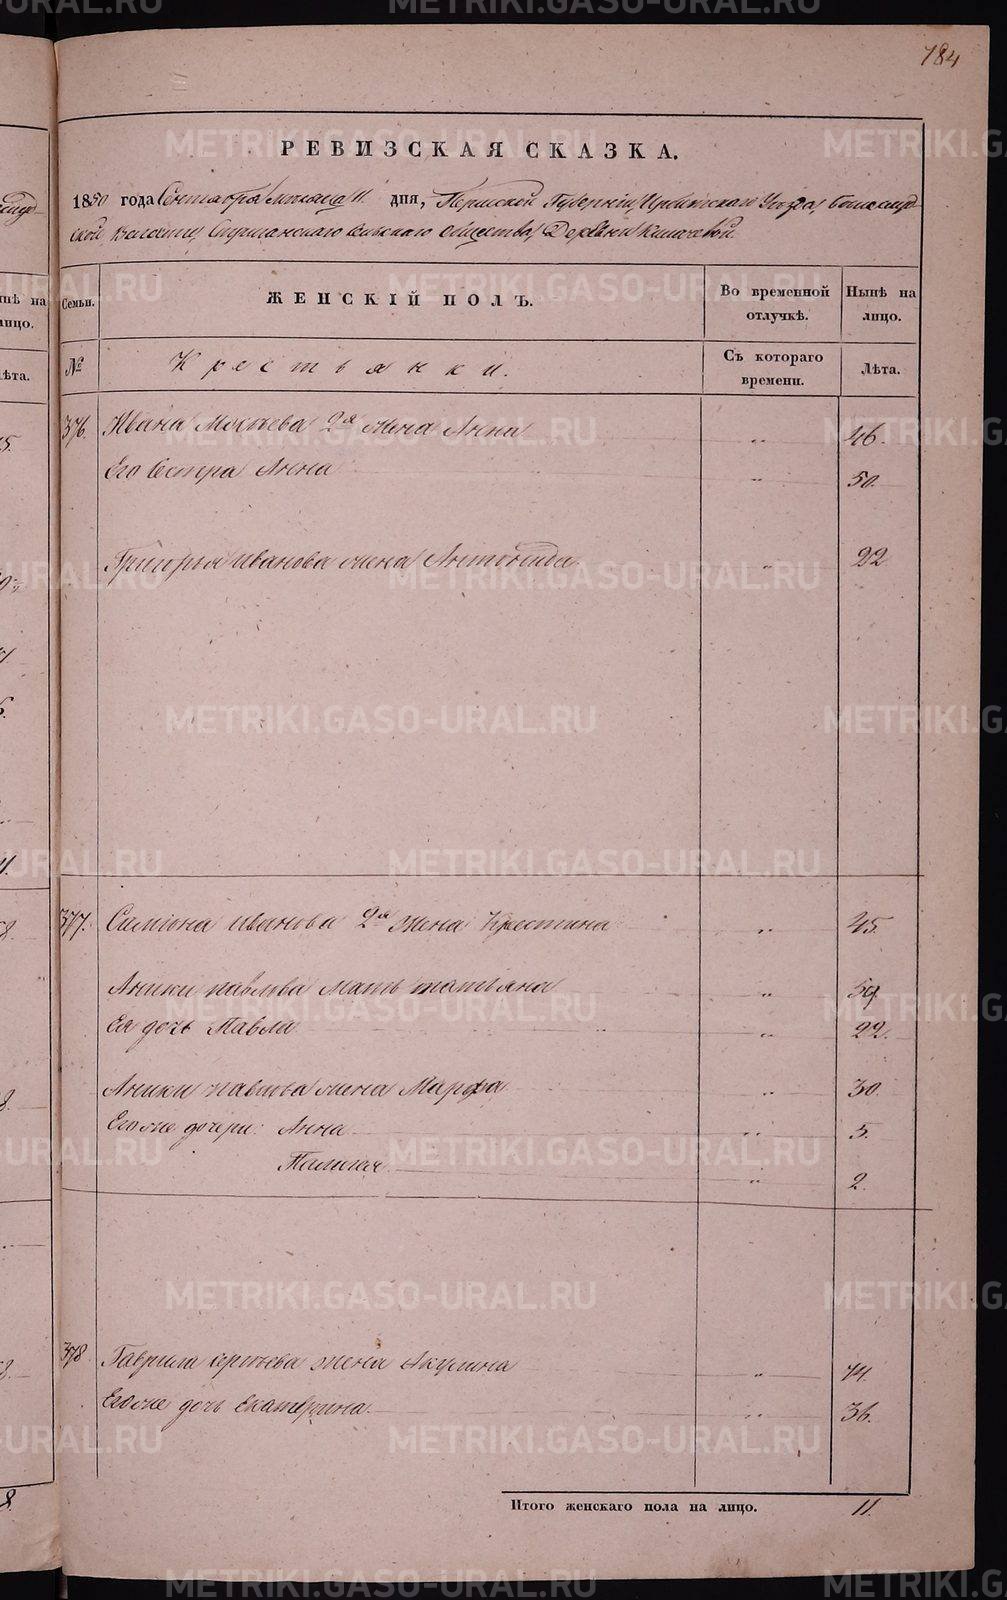 184
РЕВИЗСКАЯ СКАЗКА.
1850 года Сентября месяца 11 дня, Пермской Губернии Ирбитскаго Уезда
ской Волости, сельскаго общества Деревни
Семьи. ЖЕНСКІЙ ПОЛЪ. Во временной отлучкѣ. Нынѣ на лицо.
№ Крестьянки. Съ котораго времени. Лѣта.
376. Ивана Мосеева 2я жена Анна " 46.
Его Сестра Анна " 50.
Григорья Иванова жена Антонида " 22
377. Симіона Иванова 2я жена Крестина " 45.
Аники Павлова Мать Татьяна " 59
Ея дочь Павла " 22.
Аники Павлова жена Марфа " 30.
Егоже дочери: Анна " 5.
" 2.
378. Гаврила Сергеева жена Акулина " 74.
Егоже дочь Екатерина " 36.
Итого женскаго пола на лицо. 11.
METRIKI.GASO-URAL.RU